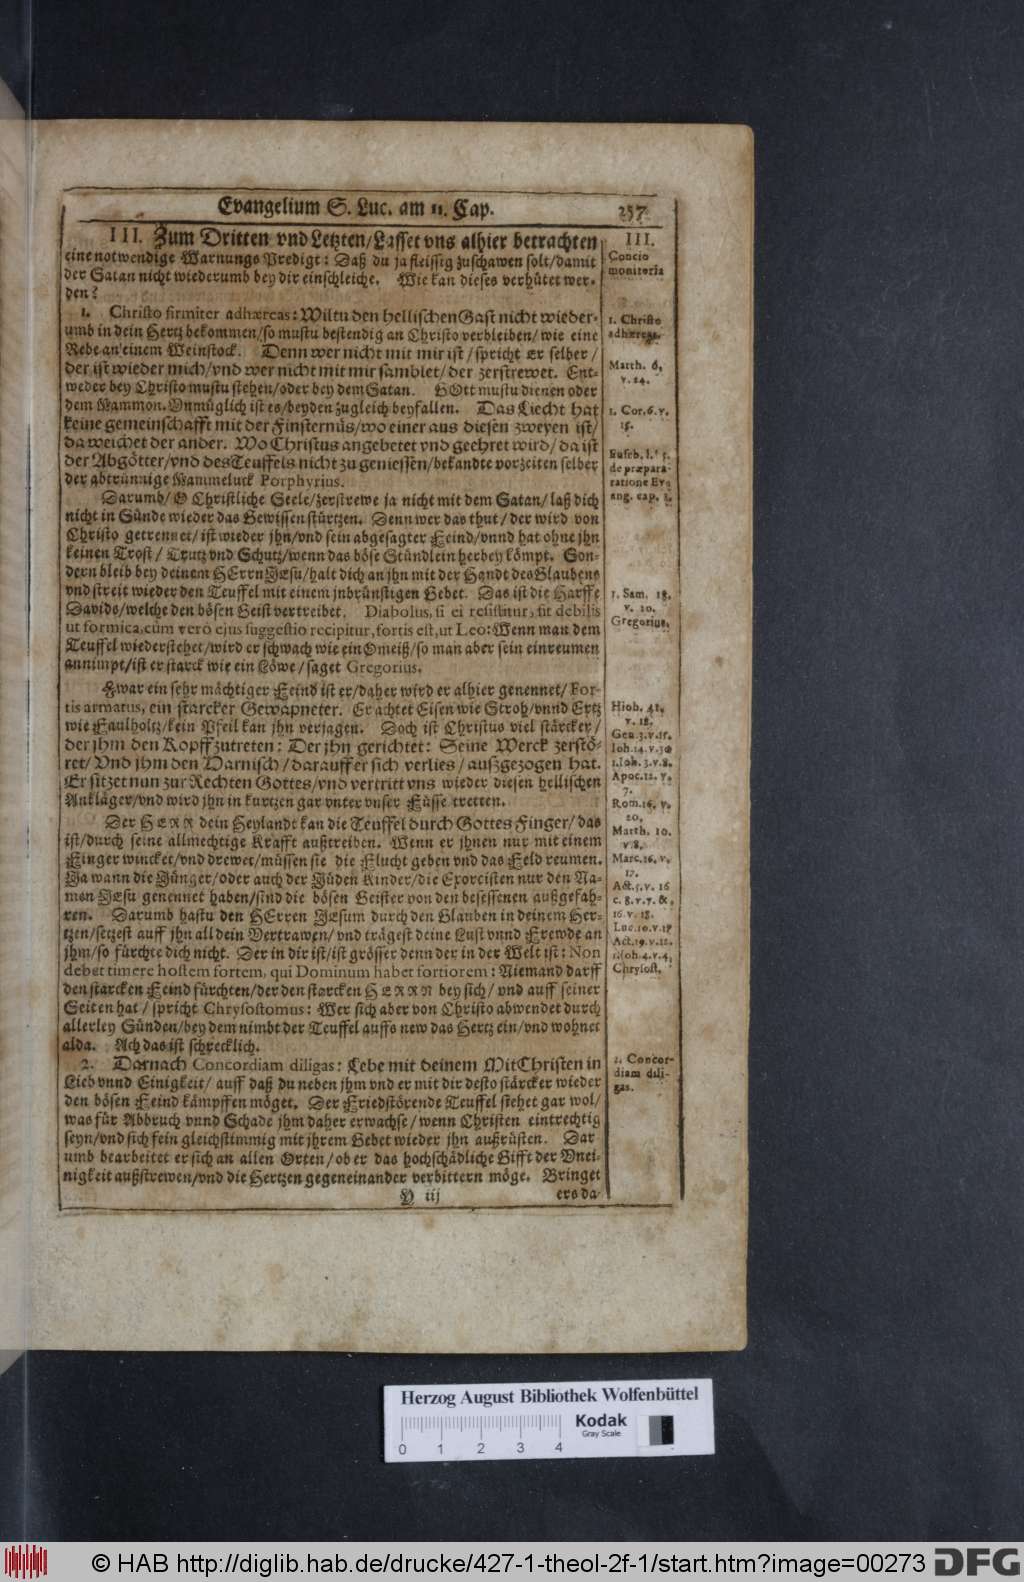 Evangelium S. Luc. am 11. Cap.
257
III. Zum Dritten vnd Letzten/Lasset vns alhier betrachten
eine notwendige Warnungs Predigt: Daß du ja fleissig zuschawen solt/damit
der Satan nicht wiederumb bey dir einschleiche. Wie kan dieses verhütet wer-
den?
1. Christo firmiter adhæreas: Wiltu den hellischen Gast nicht wieder-
umb in dein Hertz bekommen/so mustu bestendig an Christo verbleiben/wie eine
Rebe an einem Weinstock. Denn wer nicht mit mir ist/spricht Er selber/
der ist wieder mich/vnd wer nicht mit mir samblet/der zerstrewet. Ent-
weder bey Christo mustu stehen/oder bey dem Satan. GOtt mustu dienen oder
dem Mammon. Vnmüglich ist es/beyden zugleich beyfallen. Das Liecht hat
keine gemeinschafft mit der Finsternüs/wo einer aus diesen zweyen ist/
da weichet der ander. Wo Christus angebetet vnd geehret wird/da ist
der Abgötter/vnd des Teuffels nicht zu geniessen/bekandte vorzeiten selber
der abtrünnige Mammeluck Porphyrius.
Darumb/O Christliche Seele/zerstrewe ja nicht mit dem Satan/laß dich
nicht in Sünde wieder das Gewissen stürtzen. Denn wer das thut/der wird von
Christo getrennet/ist wieder jhn/vnd sein abgesagter Feind/vnnd hat ohne jhn
keinen Trost/Trutz vnd Schutz/wenn das böse Stündlein herbey kömpt. Son-
dern bleib bey deinem HErrn JEsu/halt dich an jhn mit der Handt des Glaubens
vnd streit wieder den Teuffel mit einem jnbrünstigen Gebet. Das ist die Harffe
Davids/welche den bösen Geist vertreibet. Diabolus, si ei resistitur, fit debilis
ut formica, cùm verò ejus suggestio recipitur, fortis est, ut Leo: Wenn man dem
Teuffel wiederstehet/wird er schwach wie ein Omeiß/so man aber sein einreumen
annimpt/ist er starck wie ein Löwe/saget Gregorius.
Zwar ein sehr mächtiger Feind ist er/daher wird er alhier genennet/For-
tis armatus, ein starcker Gewapneter. Er achtet Eisen wie Stroh/vnnd Ertz
wie Faulholtz/kein Pfeil kan jhn verjagen. Doch ist Christus viel stärcker/
der jhm den Kopff zutreten: Der jhn gerichtet: Seine Werck zerstö-
ret/Vnd jhm den Harnisch/darauff er sich verlies/außgezogen hat.
Er sitzet nun zur Rechten Gottes/vnd vertritt vns wieder diesen hellischen
Ankläger/vnd wird jhn in kurtzen gar vnter vnser Füsse tretten.
Der HERR dein Heylandt kan die Teuffel durch Gottes Finger/das
ist/durch seine allmechtige Krafft außtreiben. Wenn er jhnen nur mit einem
Finger wincket/vnd drewet/müssen sie die Flucht geben vnd das Feld reumen.
Ja wann die Jünger/oder auch der Jüden Kinder/die Exorcisten nur den Na-
men JEsu genennet haben/sind die bösen Geister von den besessenen außgefah-
ren. Darumb hastu den HErren JEsum durch den Glauben in deinem Her-
tzen/setzest auff jhn all dein Vertrawen/vnd trägest deine Lust vnnd Frewde an
jhm/so fürchte dich nicht. Der in dir ist/ist grösser denn der in der Welt ist: Non
debet timere hostem fortem, qui Dominum habet fortiorem: Niemand darff
den starcken Feind fürchten/der den starcken HERRN bey sich/vnd auff seiner
Seiten hat/spricht Chrysostomus: Wer sich aber von Christo abwendet durch
allerley Sünden/bey dem nimbt der Teuffel auffs new das Hertz ein/vnd wohnet
alda. Ach das ist schrecklich.
2. Darnach Concordiam diligas: Lebe mit deinem MitChristen in
Lieb vnnd Einigkeit/auff daß du neben jhm vnd er mit dir desto stärcker wieder
den bösen Feind kämpffen möget. Der Friedstörende Teuffel stehet gar wol/
was für Abbruch vnnd Schade jhm daher erwachse/wenn Christen eintrechtig
seyn/vnd sich fein gleichstimmig mit jhrem Gebet wieder jhn außrüsten. Dar
umb bearbeitet er sich an allen Orten/ob er das hochschädliche Gifft der Vnei-
nigkeit außstrewen/vnd die Hertzen gegeneinander verbittern möge. Bringet
Y iij
ers da-
III.
Concio
monitoria
1. Christo
adhæreas.
Matth. 6.
v. 24.
1. Cor. 6. v.
15.
Euseb. l. 5.
de præpara-
ratione Ev-
ang. cap. 1.
1. Sam. 18.
v. 10.
Gregorius.
Hiob. 41.
v. 18.
Gen. 3. v. 15.
Ioh. 14. v. 30
1. Ioh. 3. v. 8.
Apoc. 12. v.
7.
Rom. 16. v.
20.
Matth. 10.
v. 8.
Marc. 16. v.
17.
Act. 5. v. 16
c. 8. v. 7. &
16 v. 18.
Luc. 10. v. 17
Act. 19. v. 12.
1. Ioh. 4. v. 4.
Chrysost.
2. Concor-
diam dili-
gas.
Herzog August Bibliothek Wolfenbüttel
Kodak
Gray Scale
0 1 2 3 4
© HAB http://diglib.hab.de/drucke/427-1-theol-2f-1/start.htm?image=00273
DFG